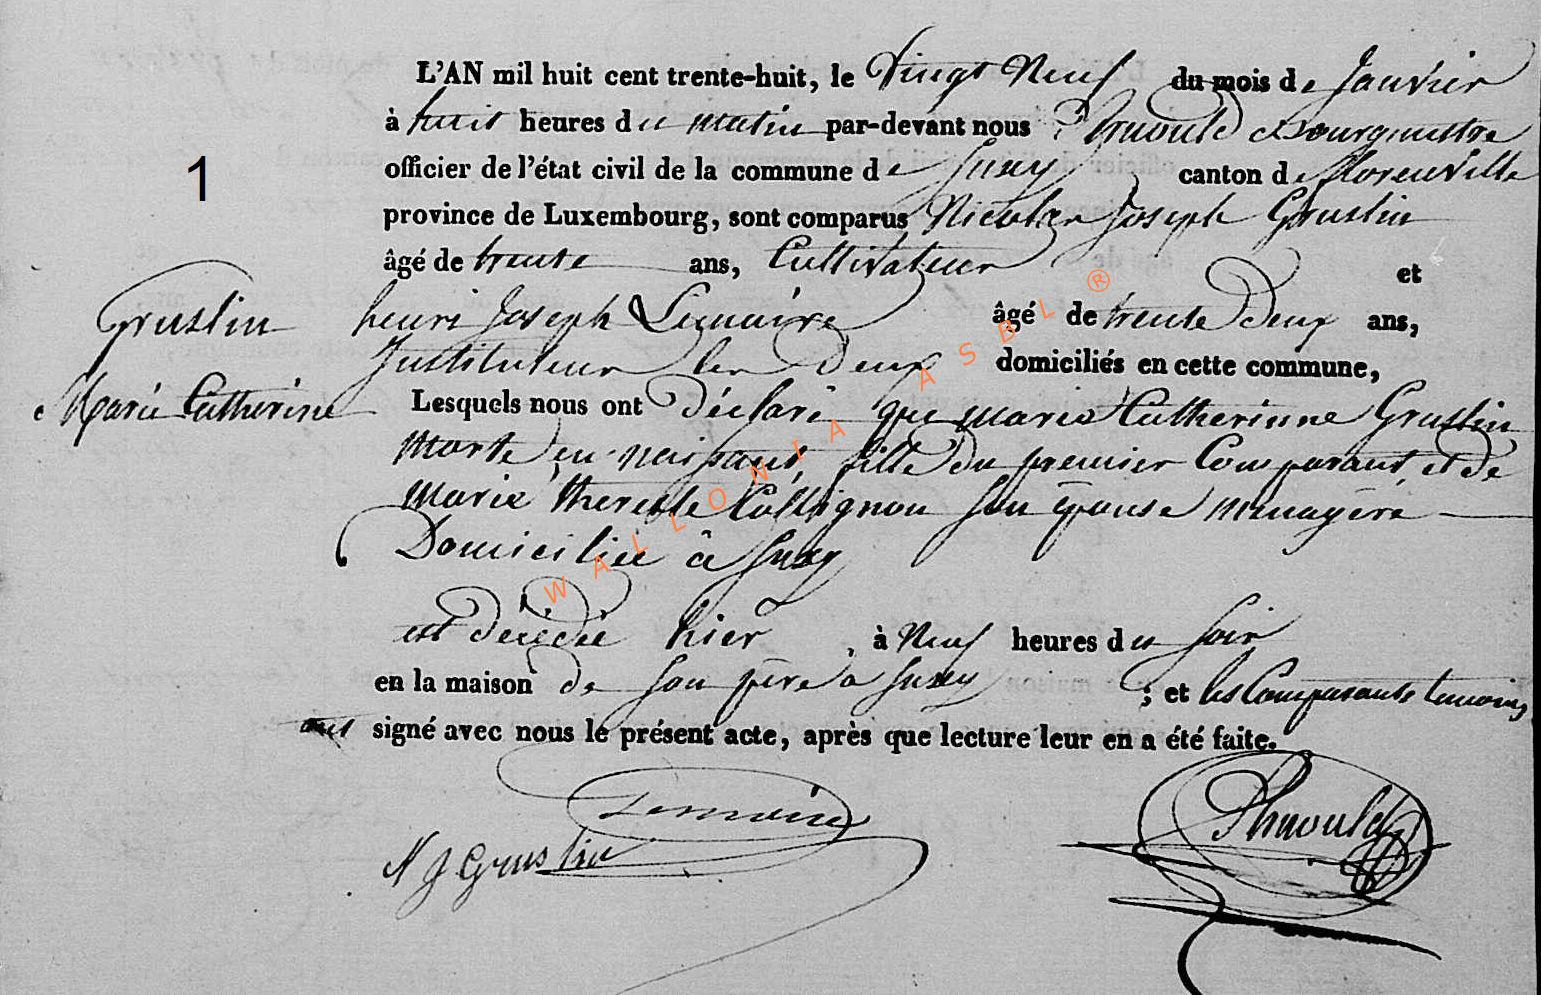 L'AN mil huit cent trente-huit, le Vingt Neuf du mois de Janvier
à huit heures du matin par-devant nous Bourguestre
officier de l'état civil de la commune de Suxy canton de florenville
1
province de Luxembourg, sont comparus Nicolas Joseph Grustin
âgé de trente ans, Cultivateur et
Grustin
henri Joseph Lemaire âgé de trente Deux ans,
Instituteur les Deux domiciliés en cette commune,
Marie Catherine
Lesquels nous ont Déclaré que marie Catherinne Grustin
Morte en naissant, fille du premier Comparant et de
Marie therese Collignon son épouse menagere
Domiciliée à Suxy
est Décédée hier, à Neuf heures du soir
en la maison de son père a Suxy ; et les Comparants temoins
ont signé avec nous le présent acte, après que lecture leur en a été faite.
Lemaire
N J Grustin
WALLONIA ASBL ®